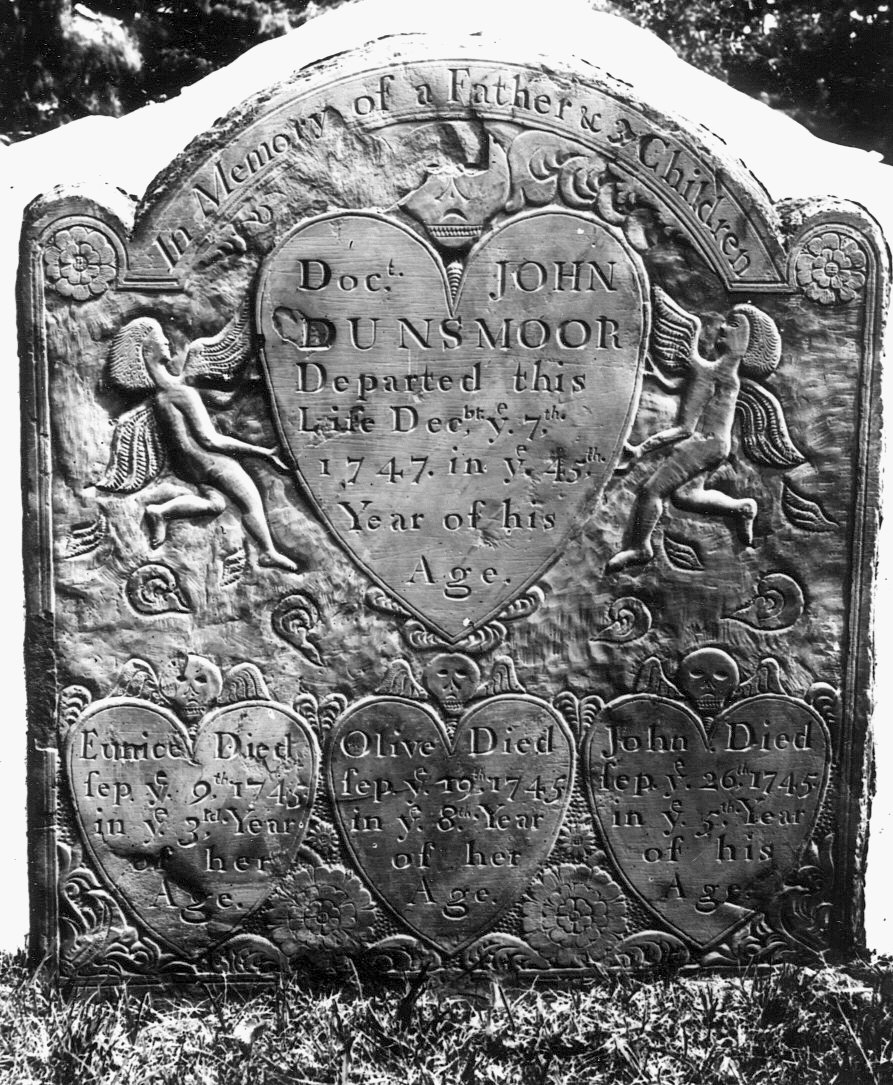 In Memory of a Father & 3 Children
Doc.t. JOHN
DUNSMOOR
Departed this
Life Dec.br. ye. 7.th.
1747. in ye. 45.th.
Year of his
Age.
Eunice Died
ſep ye. 9.th 1745
in ye 3.rd. Year
of her
Age.
Olive Died
ſep. ye 19.th 1745
in ye 8.th. Year
of her
Age.
John Died
ſep. ye 26.th 1745
in ye. 5.th Year
of his
Age.